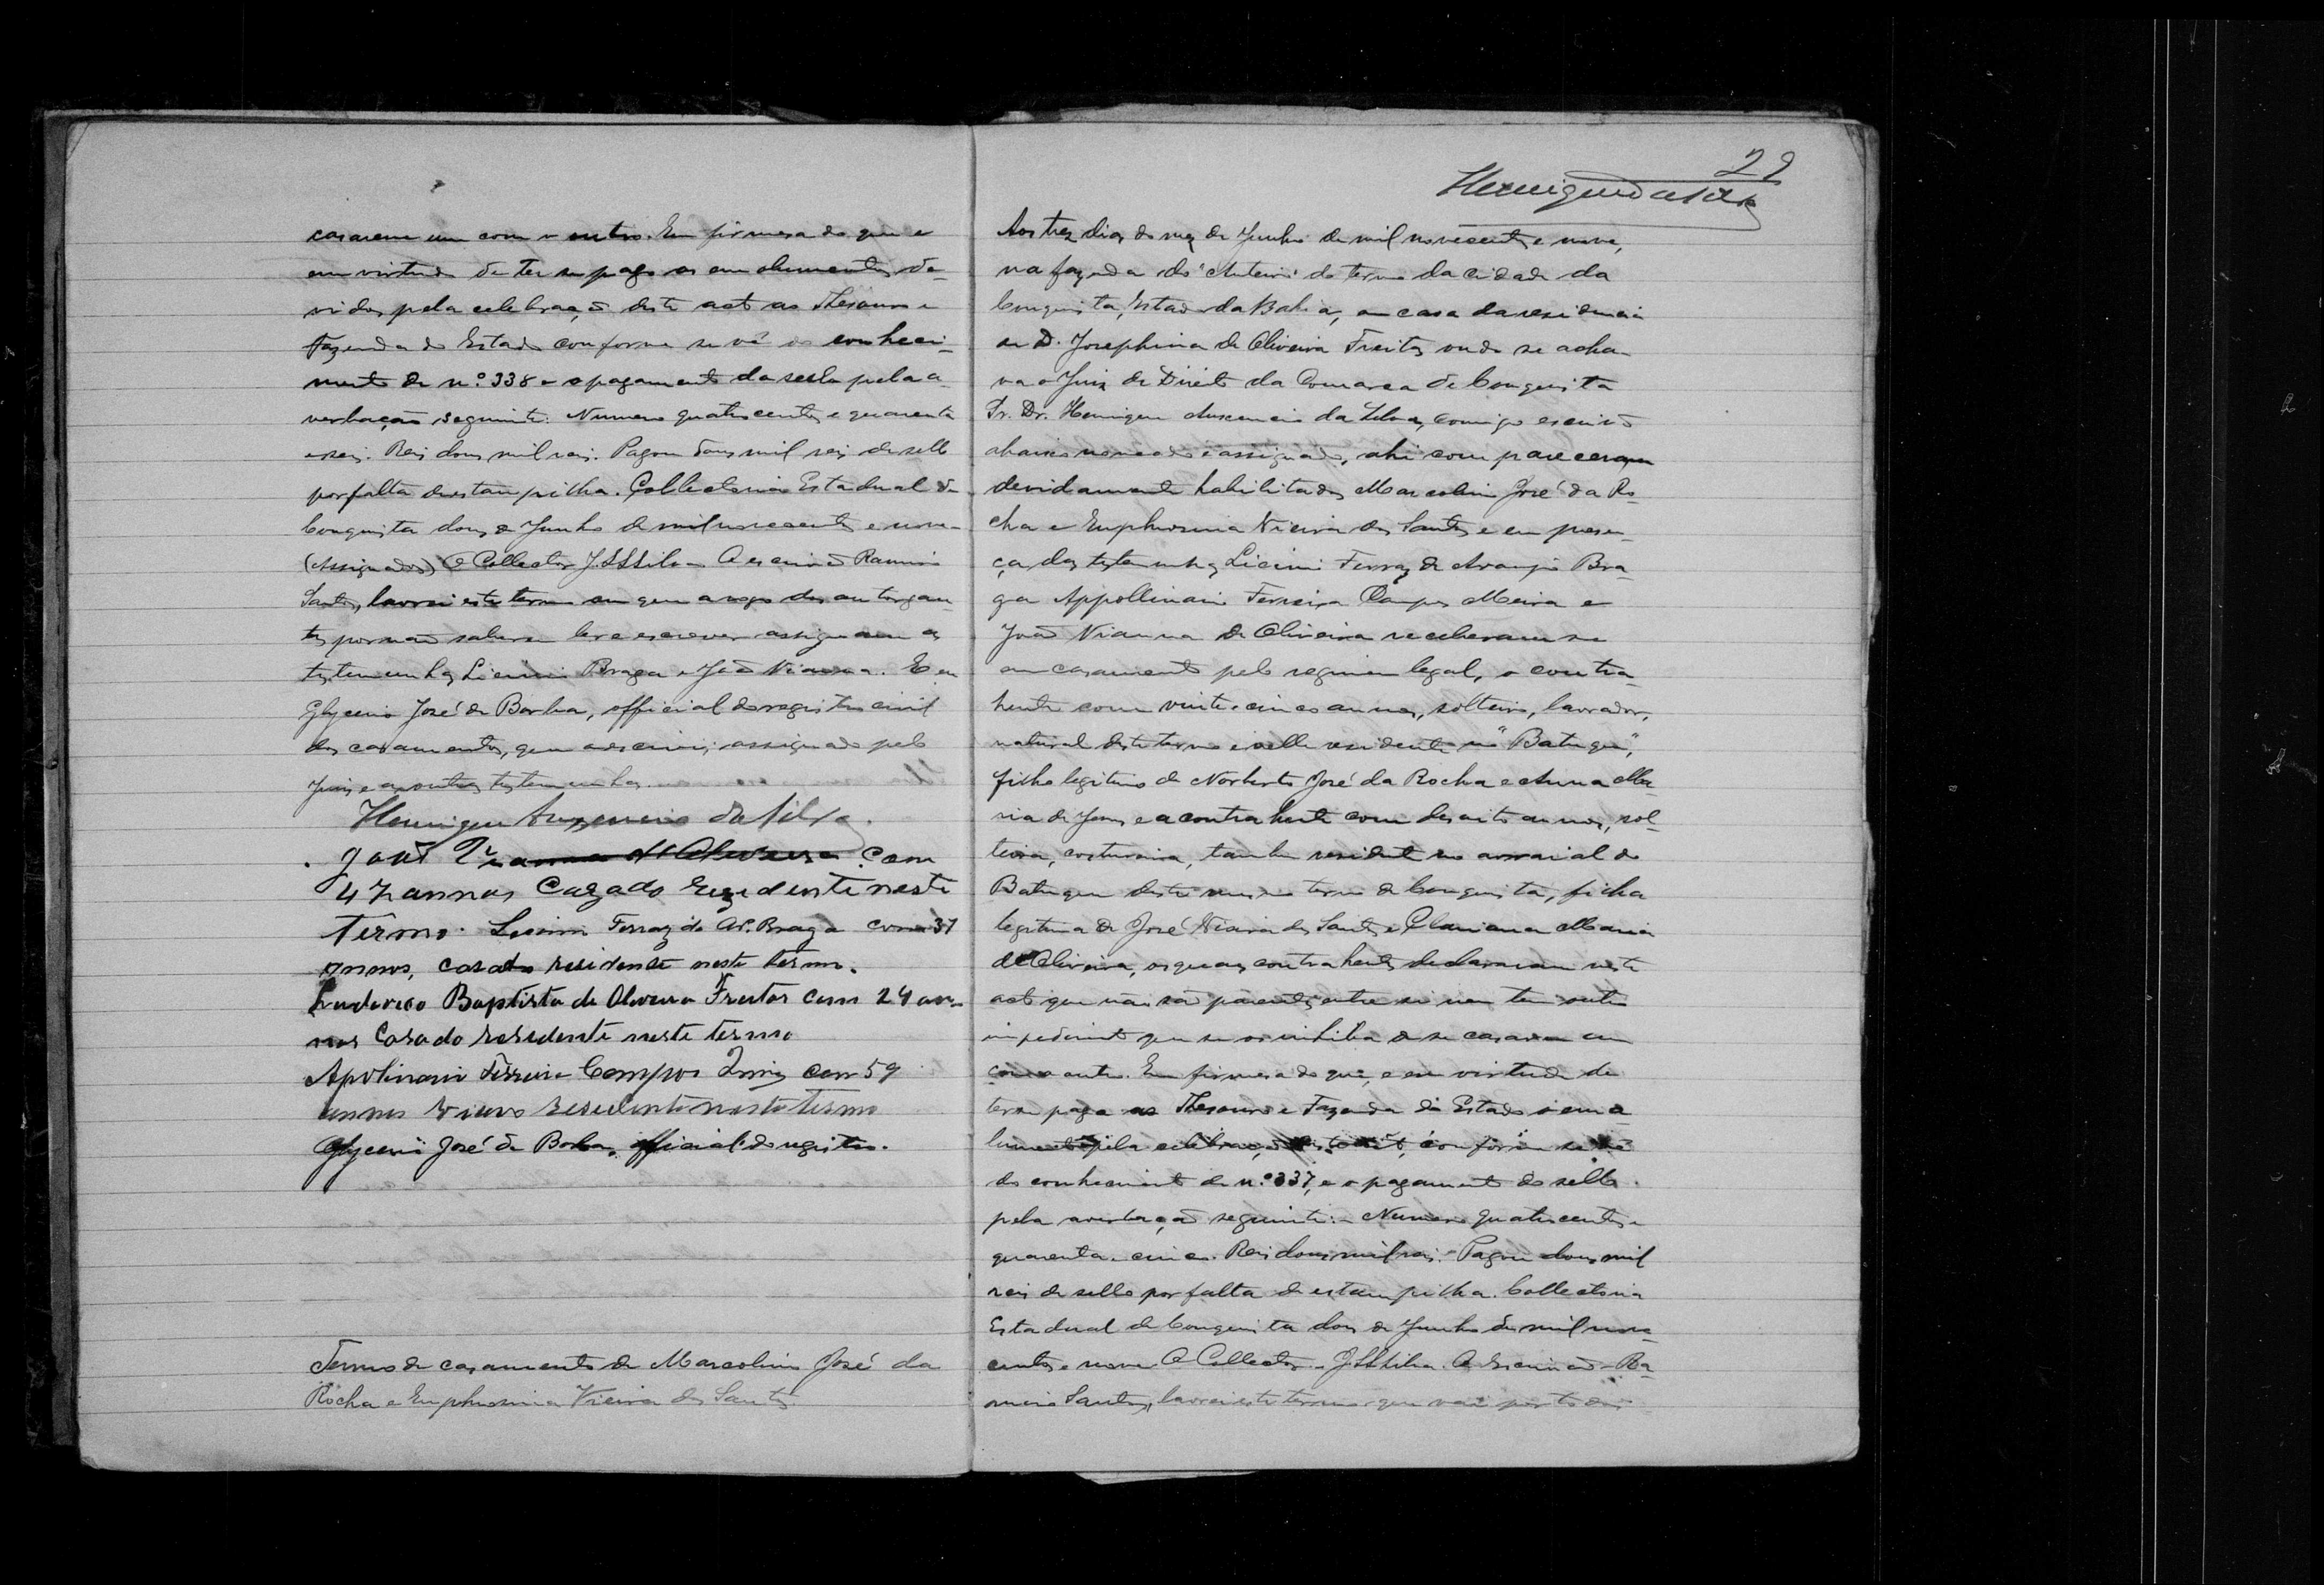 casarem um com o outro. Em firmesa do que e
em virtude de ter se pago os emolumentos de-
vidos pela celebração deste acto ao Thesouro e
Fazenda do Estado conforme se vê do conheci-
mento de n.º 338 e o pagamento do sello pela a-
verbação seguinte: Numero quatrocentos e quarenta
e seis. Reis dous mil reis. Pagou dous mil reis de sello
por falta de estampilha. Collectoria Estadual da
Conquista dous de Junho de mil novecentos e nove-
(Assignados) O Collector J. Silva O escrivão Ramiro
Santos, lavrei este termo em que a rogo dos outorgan-
tes por não saberem ler e escrever assignaram as
testemunhas Licinio Braga e João Vianna. Eu
Glycerio José da Borba, official do registro civil
dos casamentos, que o escrevi; assignado pelo
Juiz e as outras testemunhas.
Henrique da Silva.
João Vianna de Oliveira com
47 annos Cazado Rezidente neste
Têrmo. Licinio Ferraz de Ar. Braga com 37
annos, casado residente neste termo.
Baptista de Oliveira Freitas com 24 an-
nos Casado residente neste termo
Apolinario Ferreira Campos com 59
annos viuvo residente neste termo
Glycerio José da Borba, official do registro.
Termo de casamento de Marcolino José da
Rocha e Euphrosina Vieira dos Santos.
29
Henrique da Silva
Aos trez dias do mez de Junho de mil novecentos e nove,
na fazenda do "Outeiro" do termo da cidade da
Conquista, Estado da Bahia, em casa da residencia
de D. Josephina de Oliveira Freitas onde se acha-
va o Juiz de Direito da Comarca de Conquista
Sr. Dr. Henrique da Silva, comigo escrivão
abaixo nomeado e assignado, ahi compareceram
devidamente habilitados Marcolino José da Ro-
cha e Euphrosina Vieira dos Santos e em presen-
ça das testemunhas Licinio Ferraz de Araujo Bra-
ga Appollinario Ferreira Campos Meira e
João Vianna de Oliveira receberam se
em casamento pelo regimen legal, o contra-
hente com vinte e cinco annos, solteiro, lavrador,
natural deste termo e nelle residente no "Batuque",
filho legitimo de Norberto José da Rocha e Anna Ma-
ria de Jesus e a contrahente com desoito annos, sol-
teira, costureira, tambem residente no arraial do
Batuque deste mesmo termo de Conquista, filha
legitima de José Vieira dos Santos e Maria
de Oliveira, os quaes contrahentes declararam neste
acto que não são parentes entre si nem tem outro
impedimento que se os inhiba de se casarem um
com o outro. Em firmesa do que, e em virtude de
ter se pago ao Thesouro e Fazenda do Estado o emo-
lumento pela celebração deste acto, conforme se vê
do conhecimento de n.º 337, e o pagamento do sello
pela averbação seguinte:- Numero quatrocentos e
quarenta e cinco. Reis dous mil reis. Pagou dous mil
reis de sello por falta de estampilha. Collectoria
Estadual de Conquista dous de Junho de mil nove-
centos e nove. O Collector - J. Silva. O Escrivão - Ra-
miro Santos, lavrei este termo que vai por todos